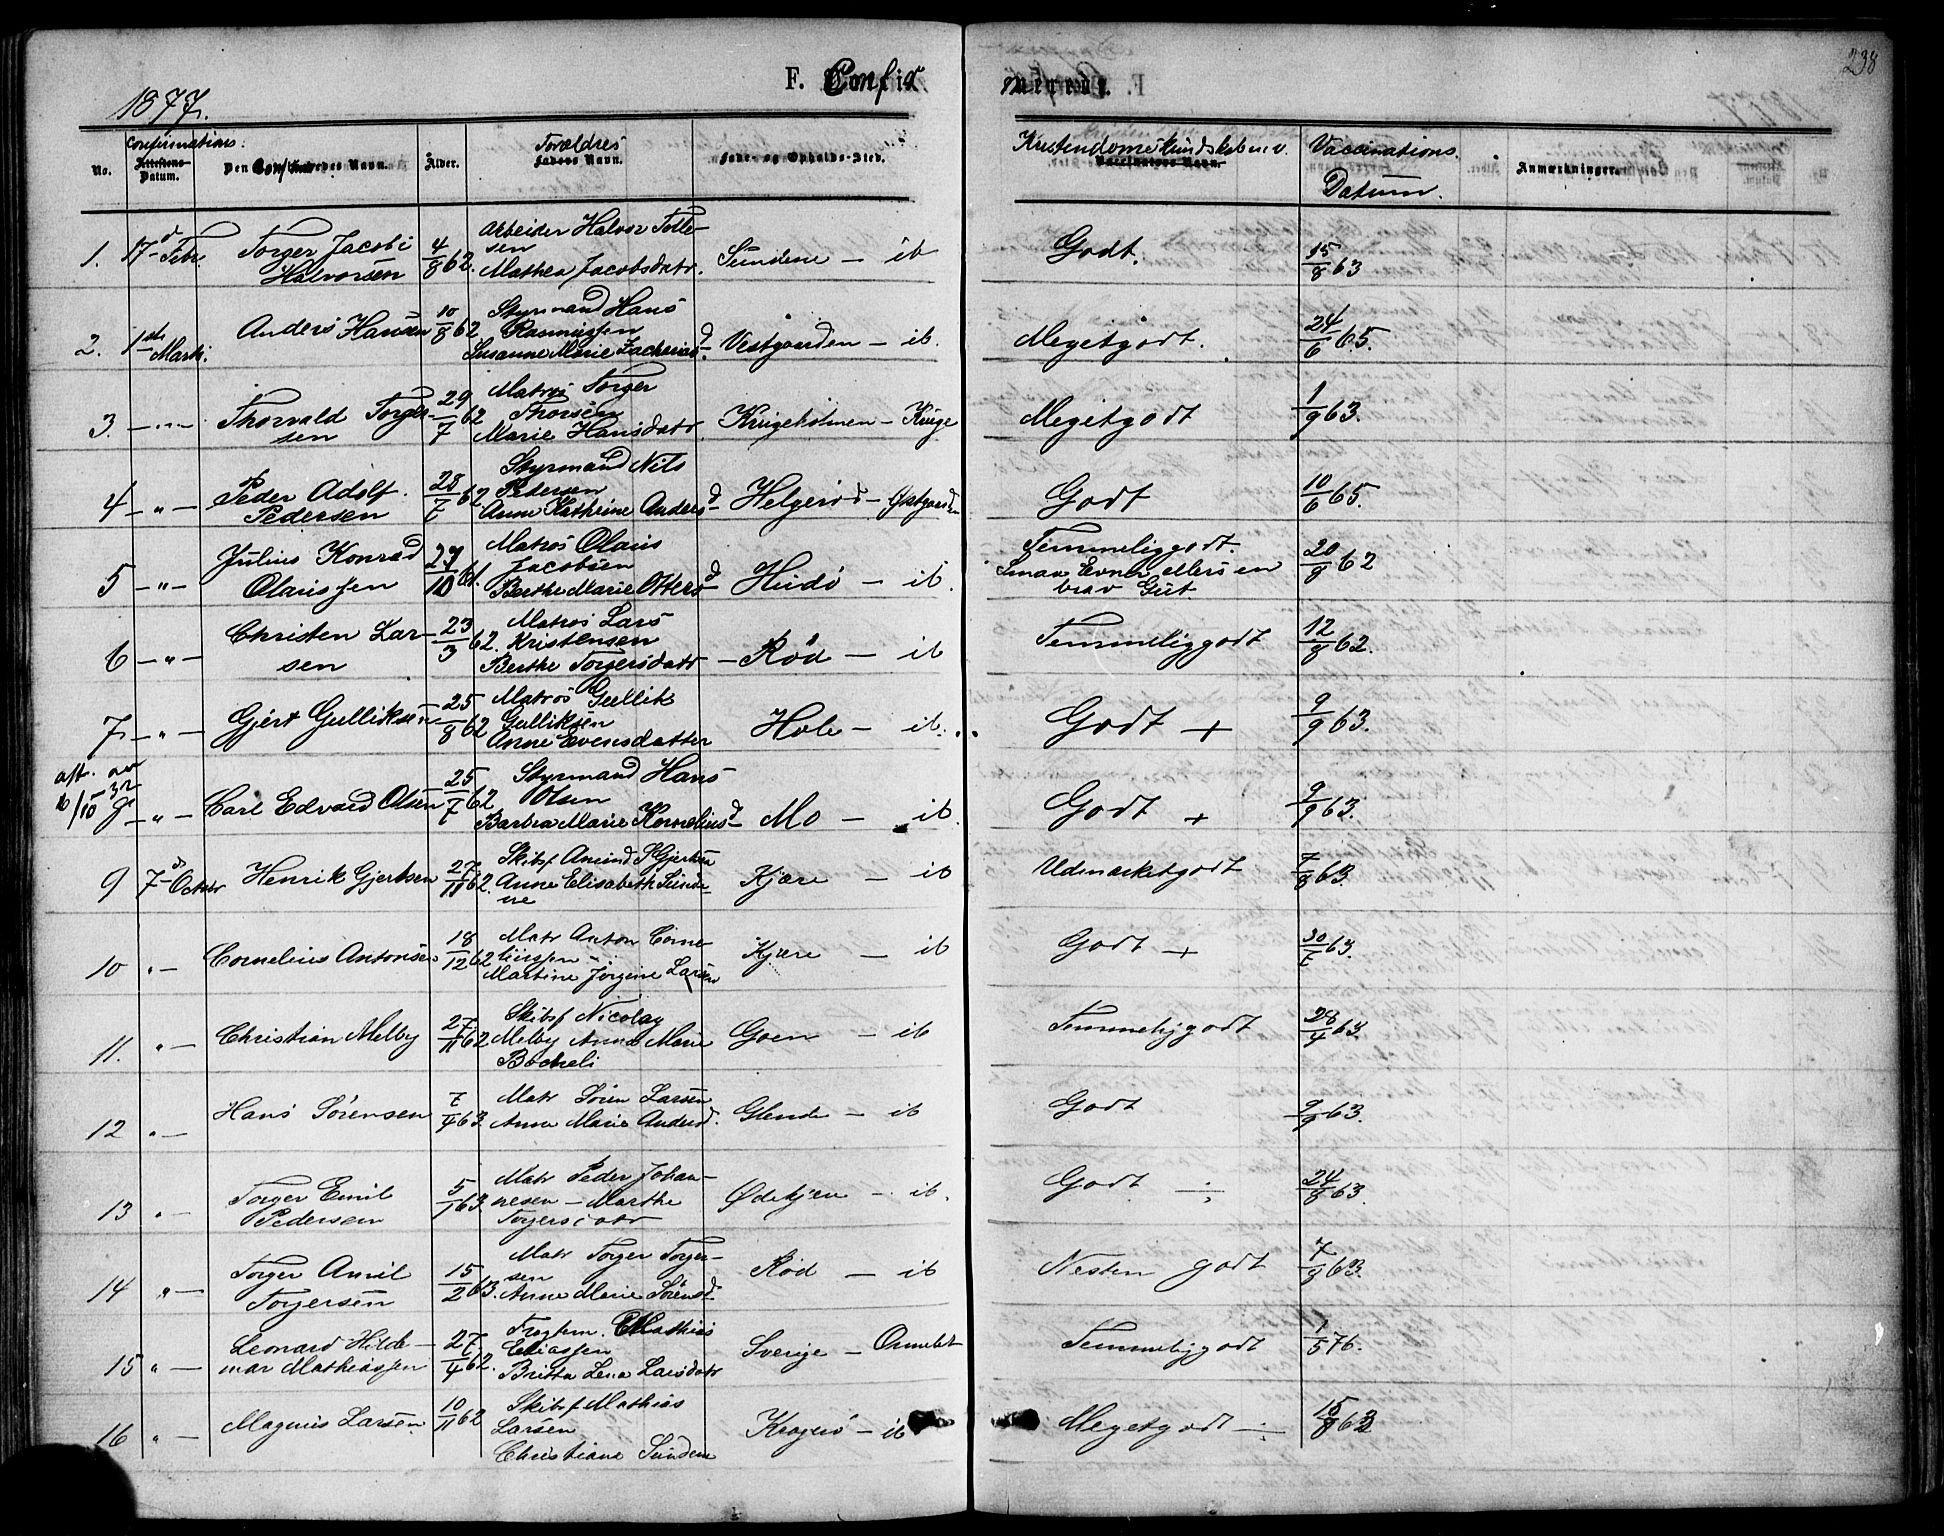 238
1877.
F. Confir
merede.
Confirmations:
No.
Attestens-
Datum.
Den Confirmeredes Navn.
Alder.
Forældres
Fødens Navn.
Føde- og Opholds-Sted.
Kristendomskundskaber v.
Vaccinations
Datum.
Anmærkninger.
1. 17d Febr. Torger Jacobi Halvorsen 4/8 62. Arbeider Halvor Tolle-
sen
Mathea Jacobsdatr. Sundene – ib Godt. 15/8 63
2. 1ste Marts. Anders Hansen 10/8 62 Styrmand Hans
Rasmussen
Susanne Marie Zachariasd. Vestgaarden – ib. Megetgodt. 24/6 65.
3. – " – Thorvald Torger-
sen 29/7 62 Matros Torger
Thorsen
Marie Hansdatr. Krugeholmen – Kruge Megetgodt 1/9 63.
4 – " – Peder Adolf.
Pedersen 28/7 62 Styrmand Nils
Pedersen
Anne Kathrine Andersd. Helgerød – Østgaarden Godt 10/6 65.
5 – " – Julius Konrad
Olaissen 27/10 61. Matros Olais
Jacobsen
Berthe Marie Ottersd. Huidø – ib. Temmeliggodt.
Smaa Evner ellers en
brav Gut. 20/9 62
6 – " – Christen Lar-
sen 23/3 62. Matros Lars
Kristensen
Berthe Torgersdatr – Rød – ib Temmeliggodt 12/8 62.
7 – " – Gjert Gulliksen 25/8 62 Matros Gullik
Gulliksen
Anne Evensdatter Hole – ib. Godt + 9/9 63.
aft. av
16/10 – 32
8 – " – Carl Edvard Olsen 25/7 62 Styrmand Hans
Olsen
Barbra Marie Korneliusd. Mo – ib. Godt + 9/9 63.
9 7d Octbr Henrik Gjertsen 27/11 62 Skibsf Amund S Gjertsen
Anne Elisabeth Sunde
ne Kjære – ib Udmærketgodt 7/8 63.
10 " – Cornelius Antonsen 18/12 62 Matr Anton Corne-
liussen
Martine Jørgine Larsen Kjære – ib Godt + 30/7 63.
11. " – Christian Melby 27/11 62 Skibsf Nicolay
Melby Anna Marie
Bocheli Goen – ib Temmeliggodt 28/4 63.
12 " – Hans Sørensen 7/4 63 Matr Søren Larsen
Anna Marie Andersd. Glende – ib Godt 9/9 63.
13 " – Torger Emil
Pedersen 5/1 63. Matr Peder Johan-
nesen – Marthe
Torgersdatr Ødekjæn – ib. Godt ÷ 24/8 63.
14 " – Torger Amil
Torgersen 15/2 63. Matr Torger Torger-
sen
Anne Marie Sørensd. Rød – ib Nesten godt 7/8 63.
15 " – Leonard Hilde-
mar Mathiassen 27/4 62. Mathias
Eliassen
Britta Lena Larsdatr Sverige – Ormelet Temmeliggodt 1/5 76.
16 " – Magnus Larsen 10/11 62 Skibsf Mathias
Larsen
Christiane Sundene Krogsrø – ib Megetgodt ÷ 15/8 63